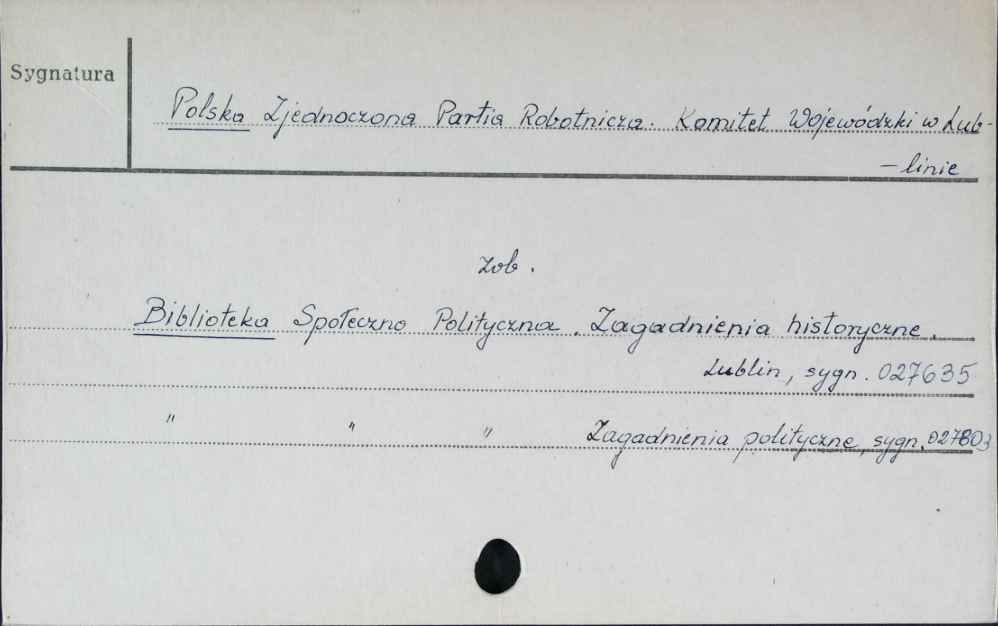 Sygnatura
Polska Zjednoczona Partia Robotnicza. Komitet Wojewódzki w Lub-
- linie
zob.
Biblioteka Społeczno Polityczna. Zagadnienia historyczne.
Lublin, sygn. 027635
" " " Zagadnienia polityczne, sygn. 027803